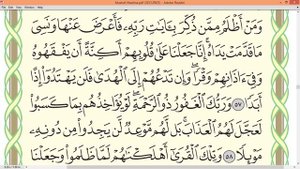 Mushaf Madina.pdf (SECURED) - Adobe Reader
File Edit View Window Help
وَمَنْ أَظْلَمُ مِمَّن ذُكِّرَ بِـَٔايَٰتِ رَبِّهِۦ فَأَعْرَضَ عَنْهَا وَنَسِىَ
مَا قَدَّمَتْ يَدَاهُ ۚ إِنَّا جَعَلْنَا عَلَىٰ قُلُوبِهِمْ أَكِنَّةً أَن يَفْقَهُوهُ
وَفِىٓ ءَاذَانِهِمْ وَقْرًا ۖ وَإِن تَدْعُهُمْ إِلَى ٱلْهُدَىٰ فَلَن يَهْتَدُوٓا۟ إِذًا
أَبَدًا ٥٧ وَرَبُّكَ ٱلْغَفُورُ ذُو ٱلرَّحْمَةِ ۖ لَوْ يُؤَاخِذُهُم بِمَا كَسَبُوا۟
لَعَجَّلَ لَهُمُ ٱلْعَذَابَ ۚ بَل لَّهُم مَّوْعِدٌ لَّن يَجِدُوا۟ مِن دُونِهِۦ
مَوْئِلًا ٥٨ وَتِلْكَ ٱلْقُرَىٰٓ أَهْلَكْنَٰهُمْ لَمَّا ظَلَمُوا۟ وَجَعَلْنَا